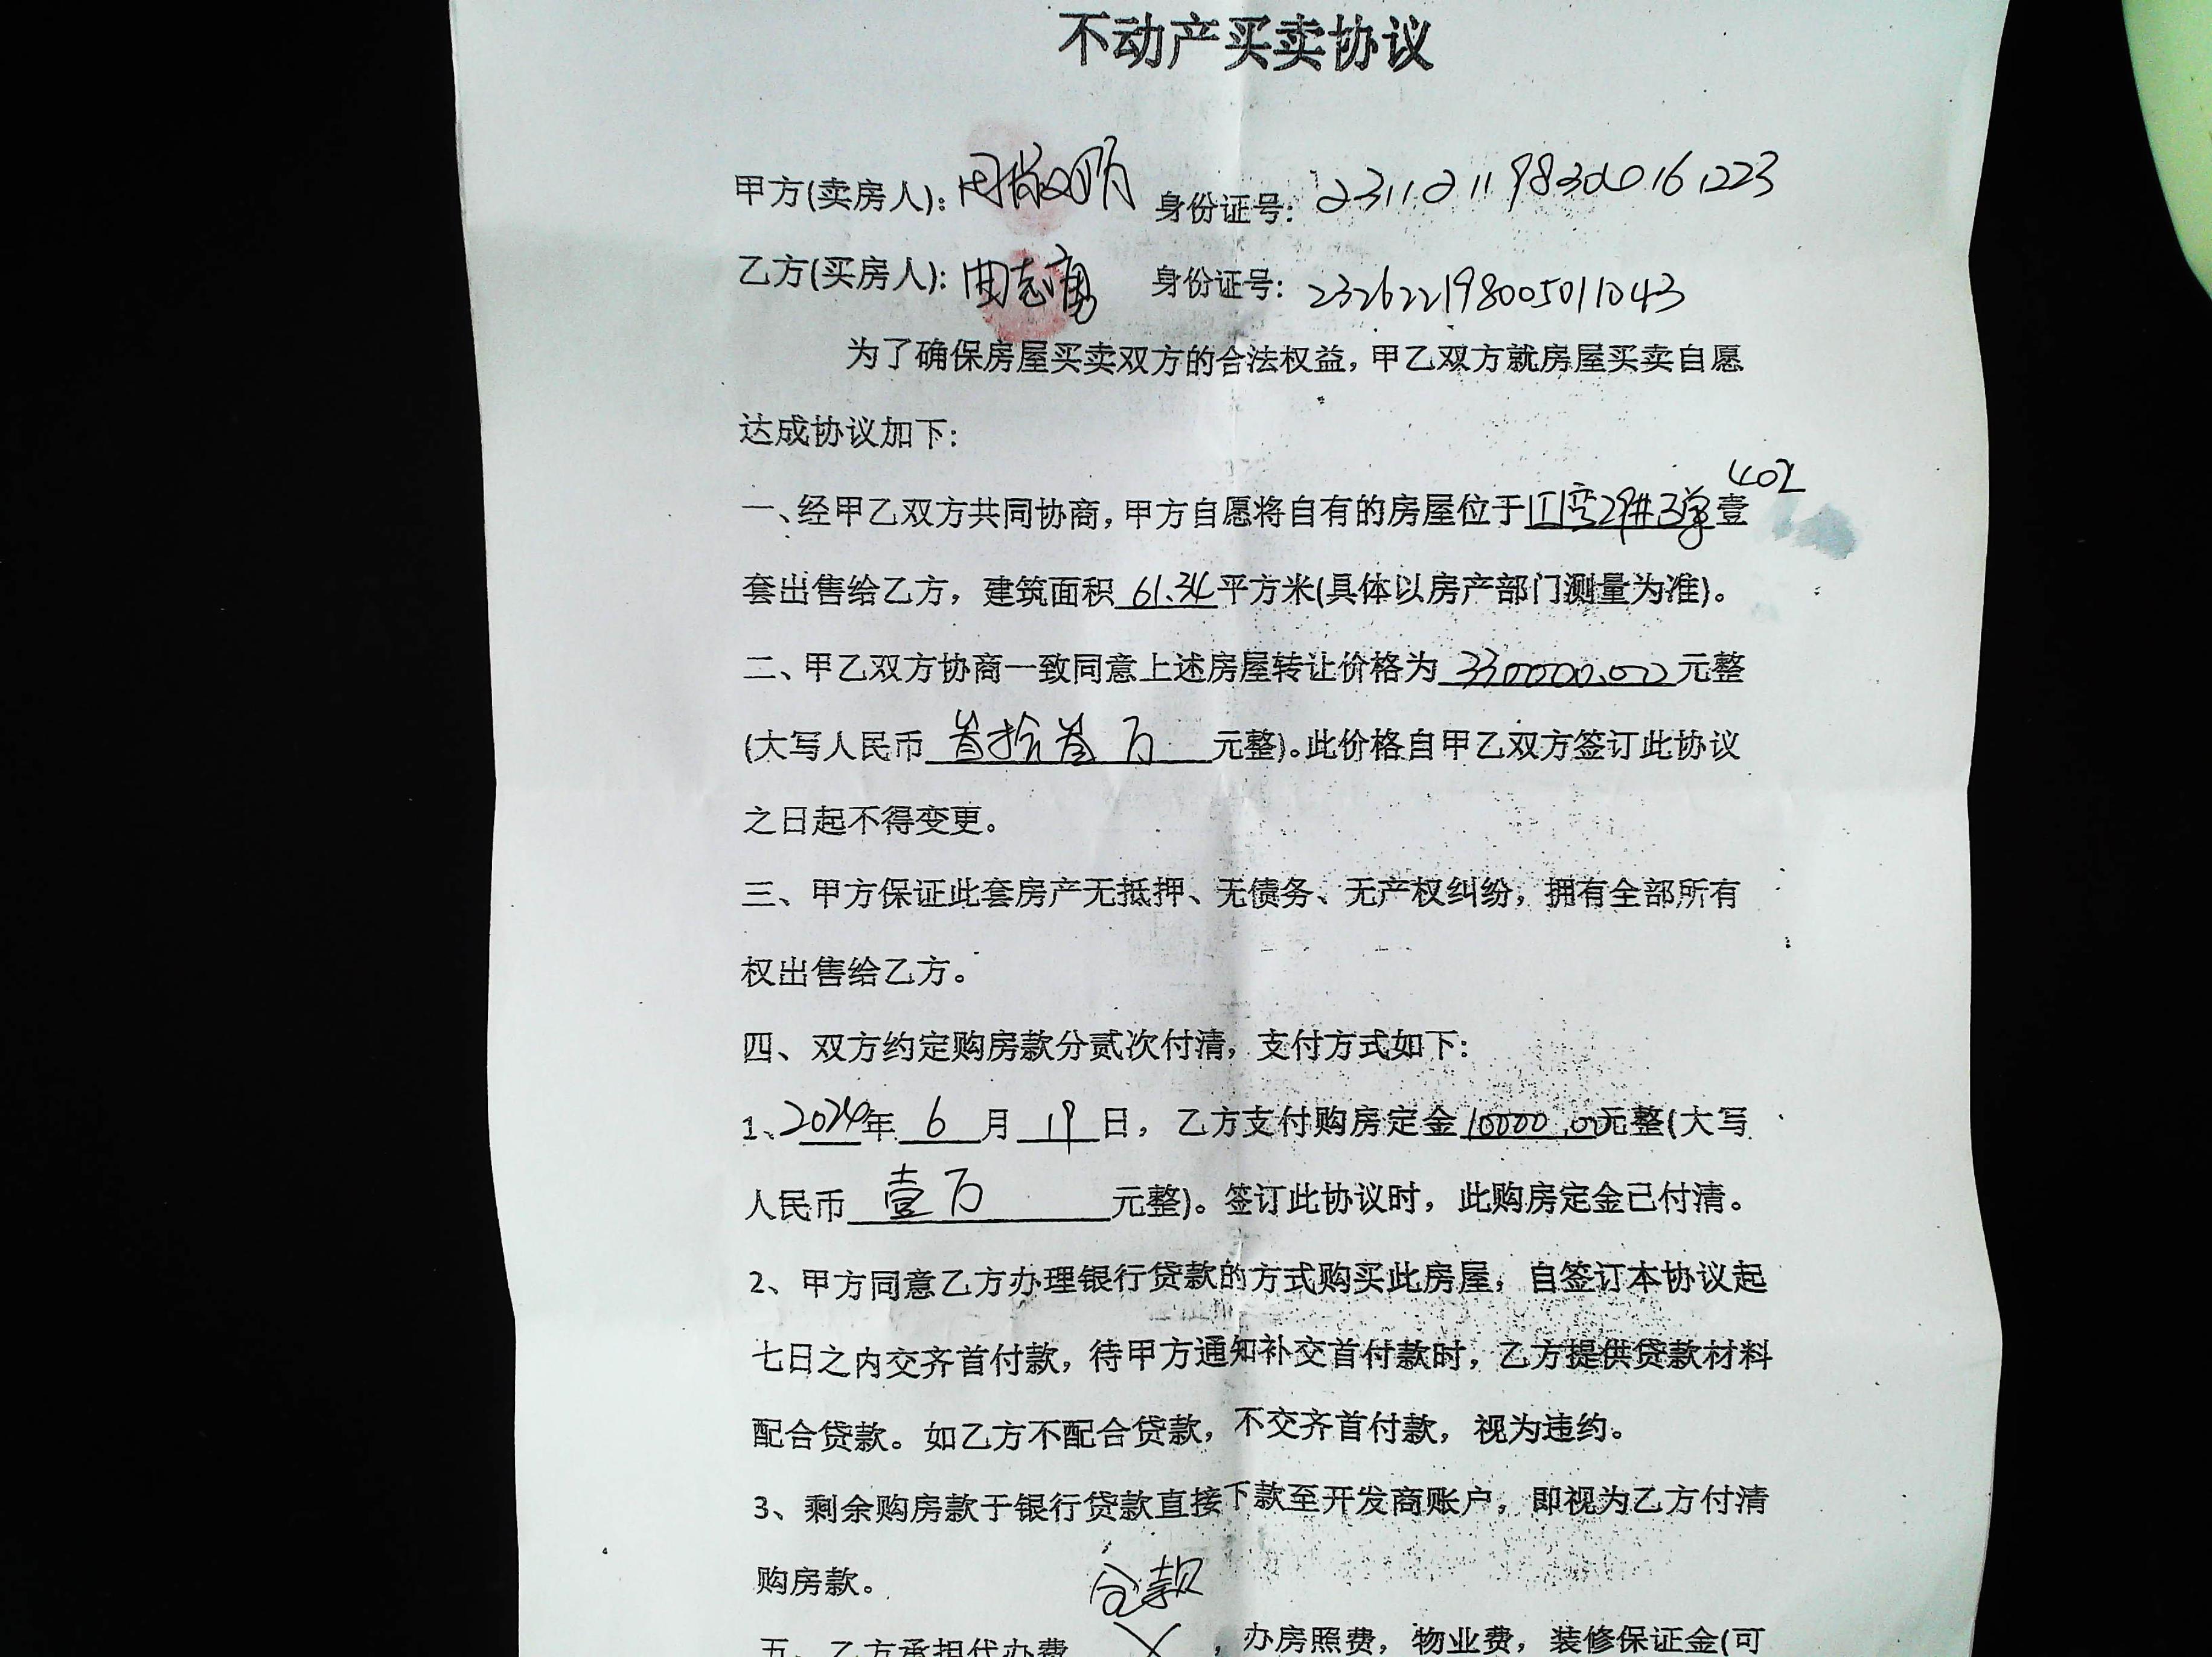 不动产买卖协议
甲方(卖房人): 身份证号:
乙方(买房人): 曲志勇 身份证号: 232622198005011043
为了确保房屋买卖双方的合法权益,甲乙双方就房屋买卖自愿
达成协议加下:
402
一、经甲乙双方共同协商,甲方自愿将自有的房屋位于江湾29#3单壹
套出售给乙方,建筑面积61.34平方米(具体以房产部门测量为准)。
二、甲乙双方协商一致同意上述房屋转让价格为330000.00元整
(大写人民币叁拾叁万元整)。此价格自甲乙双方签订此协议
之日起不得变更。
三、甲方保证此套房产无抵押、无债务、无产权纠纷,拥有全部所有
权出售给乙方。
四、双方约定购房款分贰次付清,支付方式如下:
1、2024年6月19日,乙方支付购房定金10000.00元整(大写
人民币壹万元整)。签订此协议时,此购房定金已付清。
2、甲方同意乙方办理银行贷款的方式购买此房屋,自签订本协议起
七日之内交齐首付款,待甲方通知补交首付款时,乙方提供贷款材料
配合贷款。如乙方不配合贷款,不交齐首付款,视为违约。
3、剩余购房款于银行贷款直接下款至开发商账户,即视为乙方付清
购房款。 全款
五、乙方承担代办费 ,办房照费,物业费,装修保证金(可